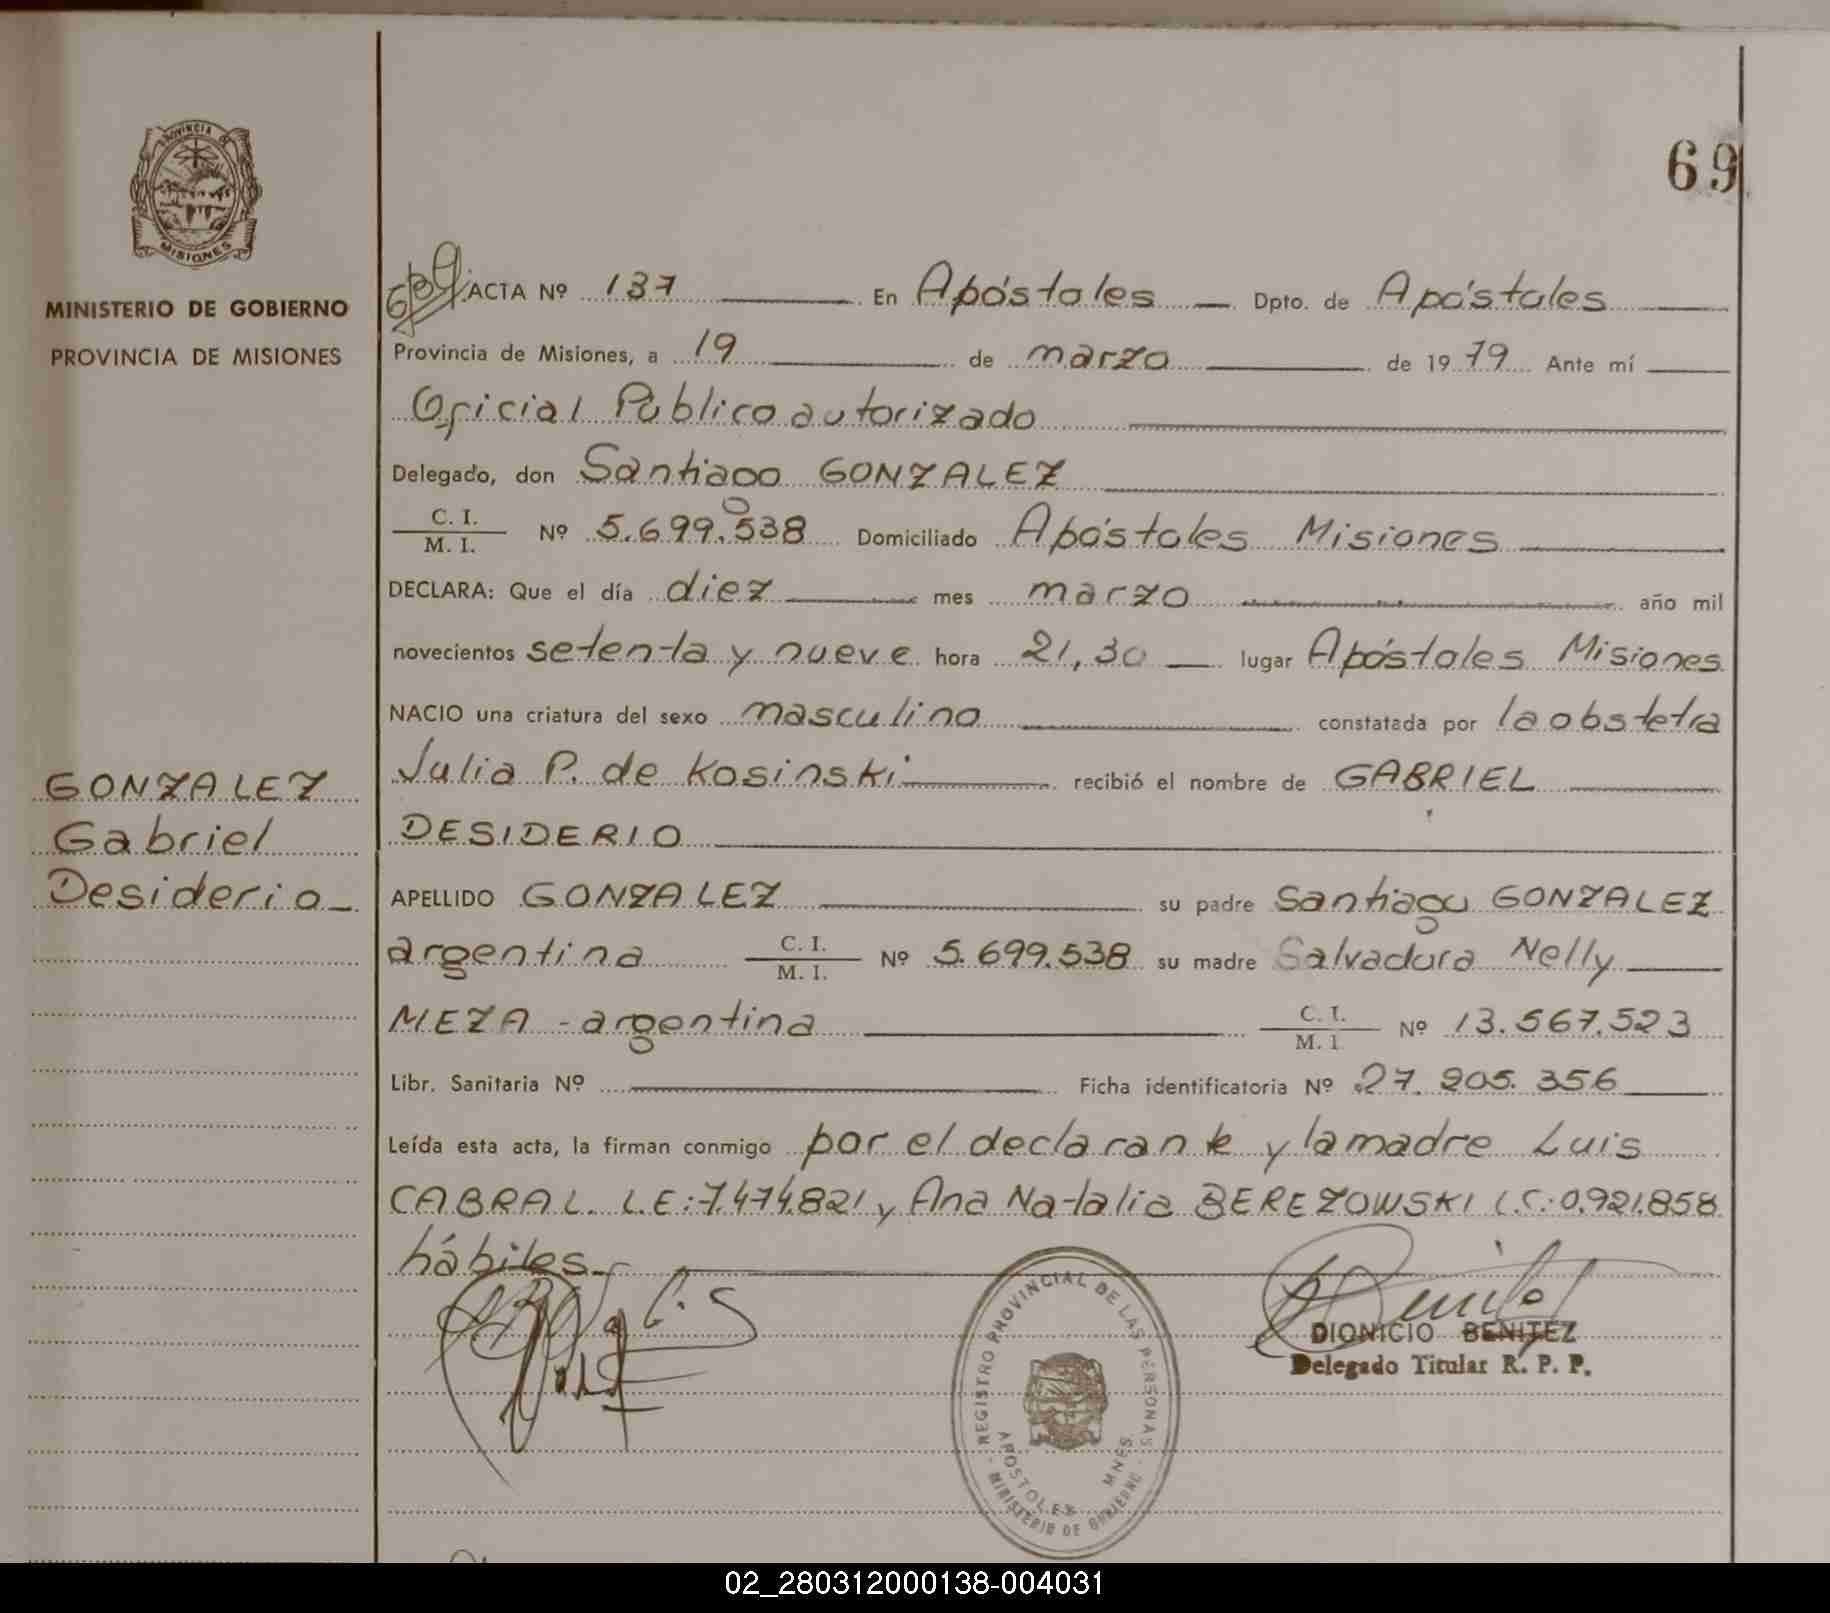 PROVINCIA DE
MISIONES
MINISTERIO DE GOBIERNO
PROVINCIA DE MISIONES
GONZALEZ
Gabriel
Desiderio
69
ACTA Nº 137 En Apóstoles Dpto. de Apóstoles
Provincia de Misiones, a 19 de marzo de 1979 Ante mí
Oficial Público autorizado
Delegado, don Santiago GONZALEZ
C. I.
M. I. Nº 5.699.538 Domiciliado Apóstoles Misiones
DECLARA: Que el día diez mes marzo año mil
novecientos setenta y nueve hora 21,30 lugar Apóstoles Misiones
NACIO una criatura del sexo masculino constatada por la obstetra
Julia P. de Kosinski recibió el nombre de GABRIEL
DESIDERIO
APELLIDO GONZALEZ su padre Santiago GONZALEZ
argentina C. I. M. I. Nº 5.699.538 su madre Salvadora Nelly
MEZA - argentina C. I. M. I Nº 13.567.523
Libr. Sanitaria Nº Ficha identificatoria Nº 27.205.356
Leída esta acta, la firman conmigo por el declarante y la madre Luis
CABRAL. L.E: 7.474.821 y Ana Natalia BEREZOWSKI L.C: 0.921.858
hábiles
REGISTRO PROVINCIAL DE LAS PERSONAS
APOSTOLES MNES
MINISTERIO DE GOBIERNO
DIONICIO BENITEZ
Delegado Titular R. P. P.
02_280312000138-004031